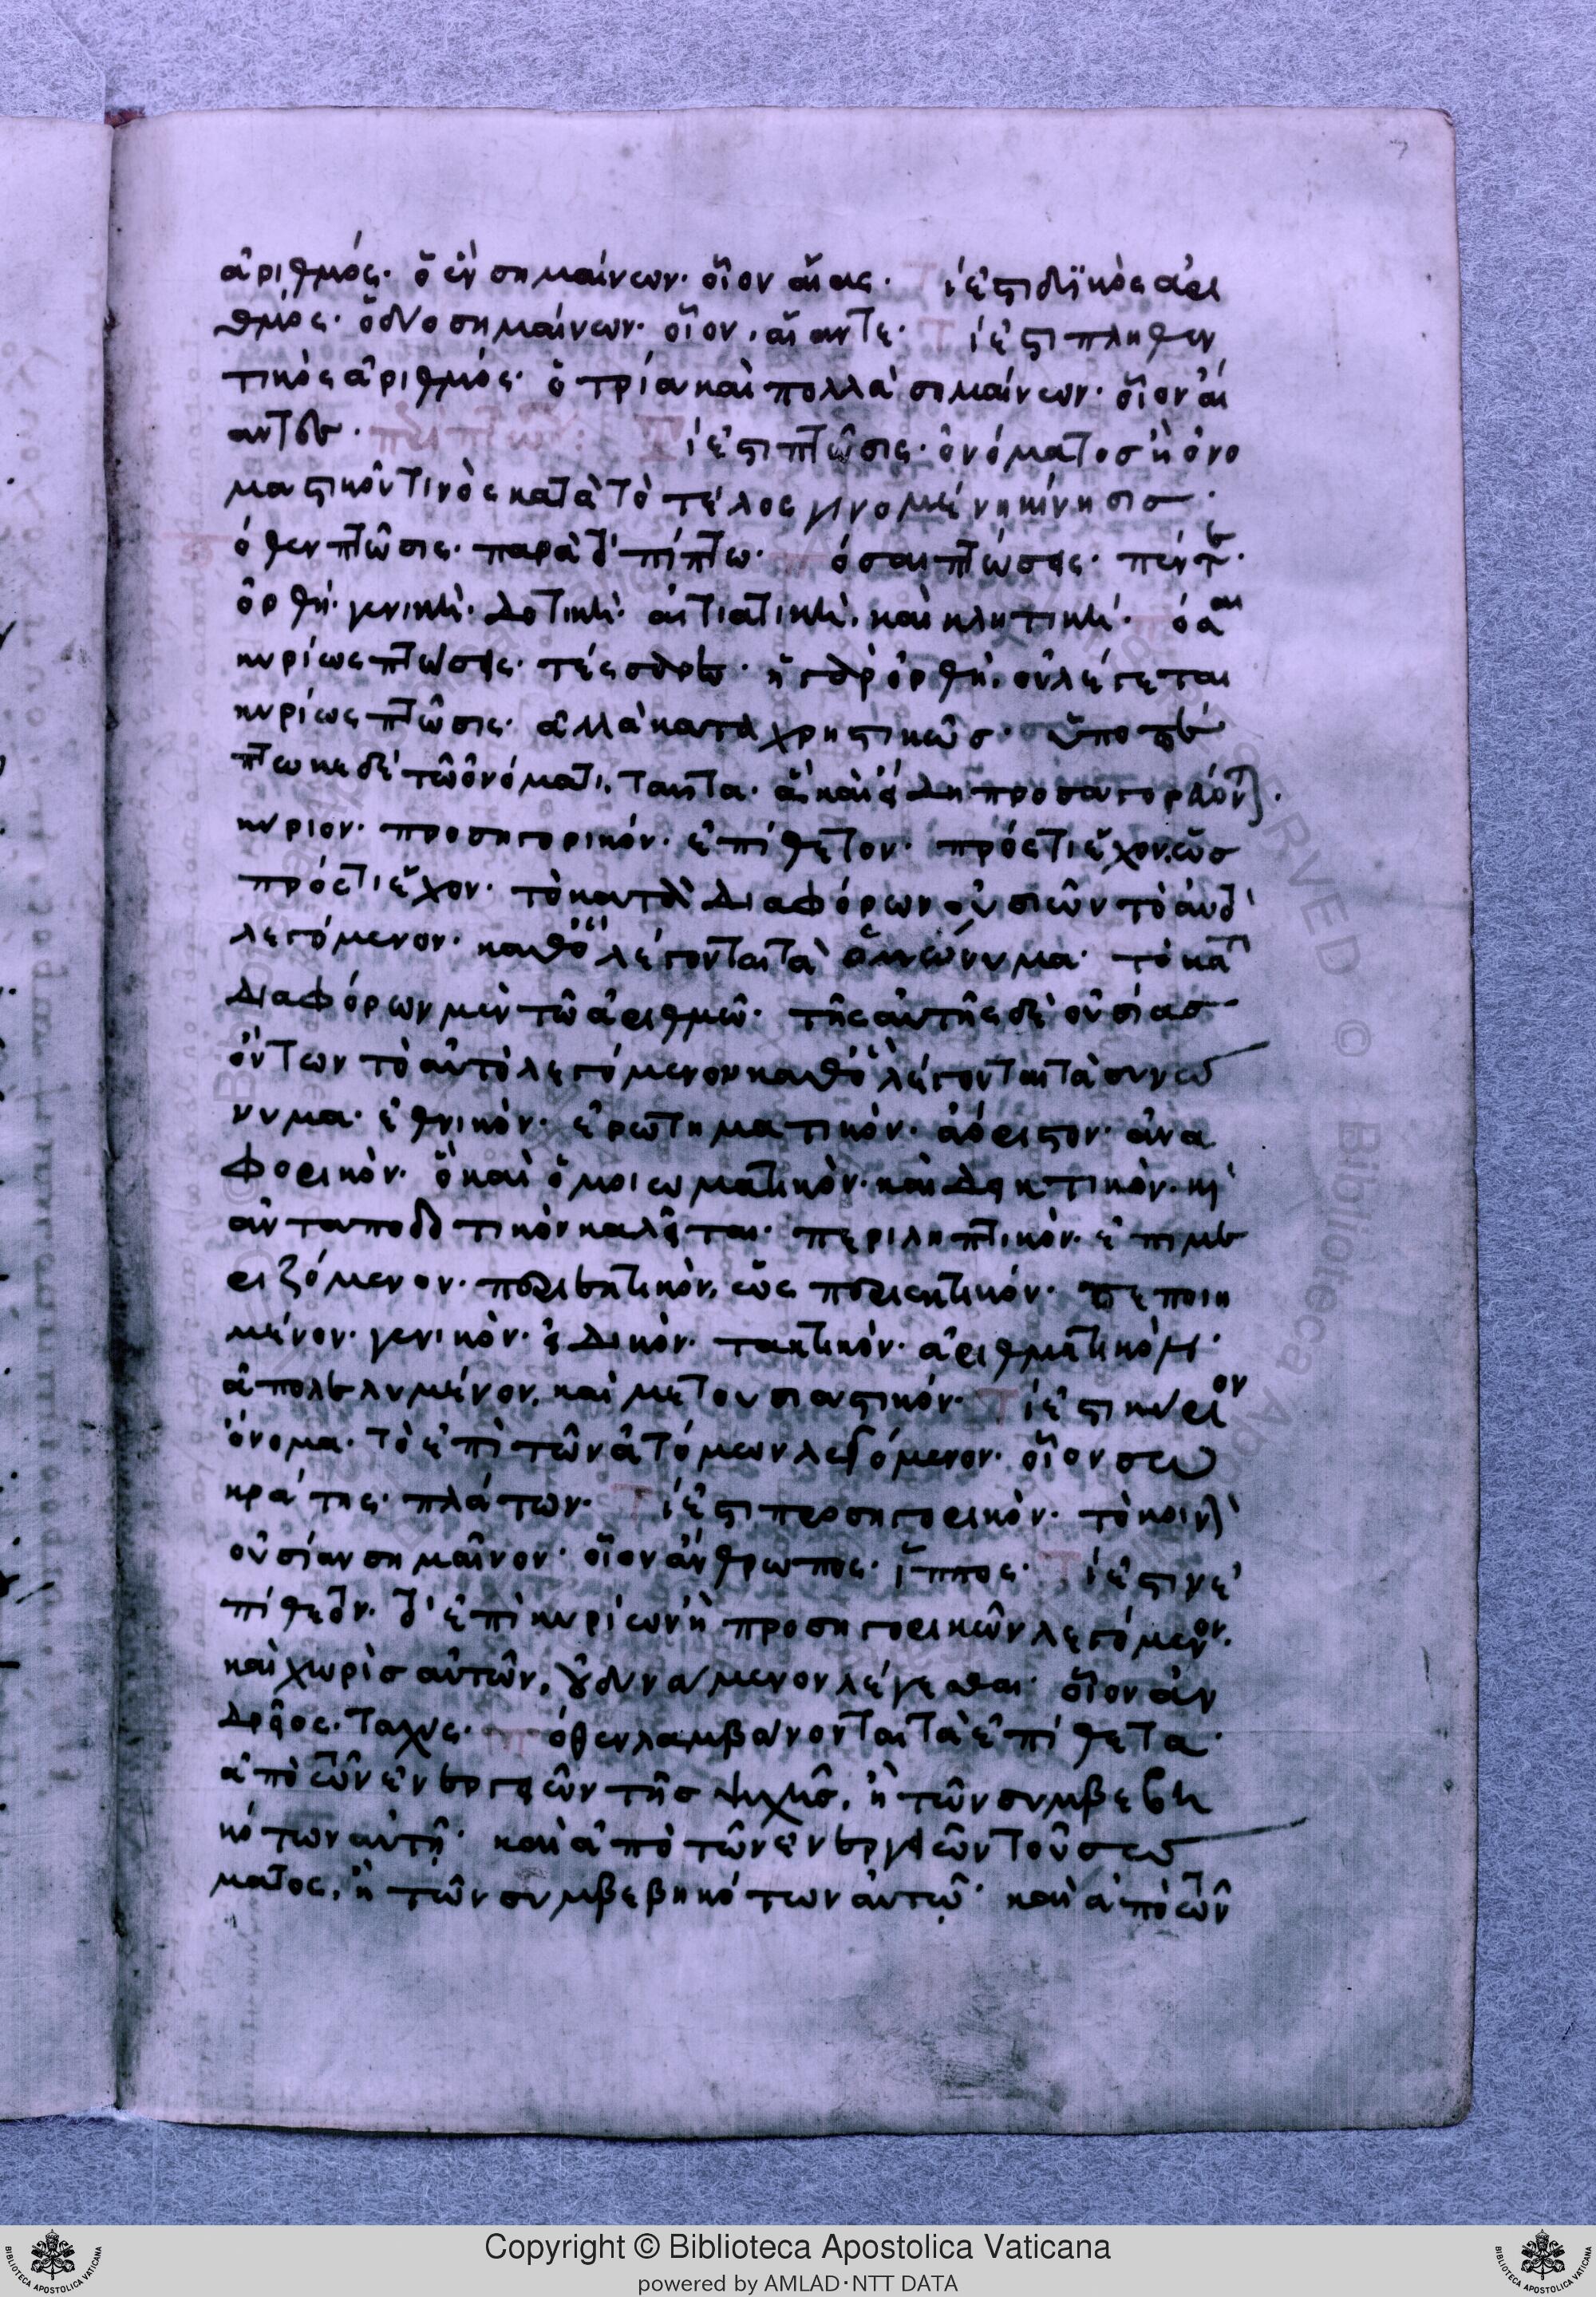 ἀριθμός· ὁ ἓν σημαίνων· οἷον αἴας· Τί ἐστι δϊκὸς ἀρι
θμός· ὁ δύο σημαίνων· οἷον, αἴαντε· Τί ἐστι πληθυν
τικὸς ἀριθμός· ὁ τρία καὶ πολλὰ σημαίνων· οἷον αἴ
αντες· περὶ πτώσεων: Τί ἐστι πτῶσις· ὀνόματος ἢ ὀνο
ματικοῦ τινὸς κατὰ τὸ τέλος γινομένη κίνησις·
ὅθεν πτῶσις· παρὰ τὸ πίπτω· πόσαι πτώσεις· πέντε·
ὀρθή· γενική· δοτική· αἰτιατική, καὶ κλητική· πόσαι
κυρίως πτώσεις· τέσσαρες· ἡ γὰρ ὀρθὴ, οὐ λέγεται
κυρίως πτῶσις· ἀλλὰ καταχρηστικῶς· ὑποπέ
πτωκε δὲ τῶ ὀνόματι, ταῦτα· ἃ καὶ εἴδη προσαγορεύονται·
κύριον· προσηγορικόν· ἐπίθετον· πρός τι ἔχον, ὡς
πρός τι ἔχον· τὸ κατὰ διαφόρων οὐσιῶν τὸ αὐτὸ
λεγόμενον· καθὸ λέγονται τὰ ὁμώνυμα· τὸ κατὰ
διαφόρων μὲν τῶ ἀριθμῶ· τῆς αὐτῆς δὲ οὐσίας
ὄντων τὸ αὐτὸ λεγόμενον καθὸ λέγονται τὰ συνω
νυμα· ἐθνικὸν· ἐρωτηματικὸν· ἀόριστον· ἀνα
φορικὸν· ὃ καὶ ὁμοιωματικὸν· καὶ δεικτικὸν· καὶ
ἀνταποδοτικὸν καλεῖται· περιληπτικὸν· ἐπιμε
ριζόμενον· περιεκτικόν· πεποιη
μένον· γενικὸν· εἰδικὸν· τακτικὸν· ἀριθμητικὸν·
ἀπολελυμένον, καὶ μετουσιαστικόν· Τί ἐστι κύριον
ὄνομα· τὸ ἐπὶ τῶν ἀτόμων λεγόμενον· οἷον σω
κράτης· πλάτων· Τί ἐστι προσηγορικὸν· τὸ κοινὴν
οὐσίαν σημαῖνον· οἷον ἄνθρωπος· ἵππος· Τί ἐστιν ἐ
πίθετον· τὸ ἐπὶ κυρίων ἢ προσηγορικῶν λεγόμενον,
καὶ χωρὶς αὐτῶν, οὐ δυνάμενον λέγεσθαι· οἷον ἀν
δρεῖος· ταχύς· πόθεν λαμβάνονται τὰ ἐπίθετα·
ἀπὸ τῶν ἐνεργειῶν τῆς ψυχῆς, ἢ τῶν συμβεβη
κότων αὐτῆ· καὶ ἀπὸ τῶν ἐνεργειῶν τοῦ σώ
ματος, ἢ τῶν συμβεβηκότων αὐτῶ· καὶ ἀπὸ τῶν
Copyright © Biblioteca Apostolica Vaticana
powered by AMLAD·NTT DATA